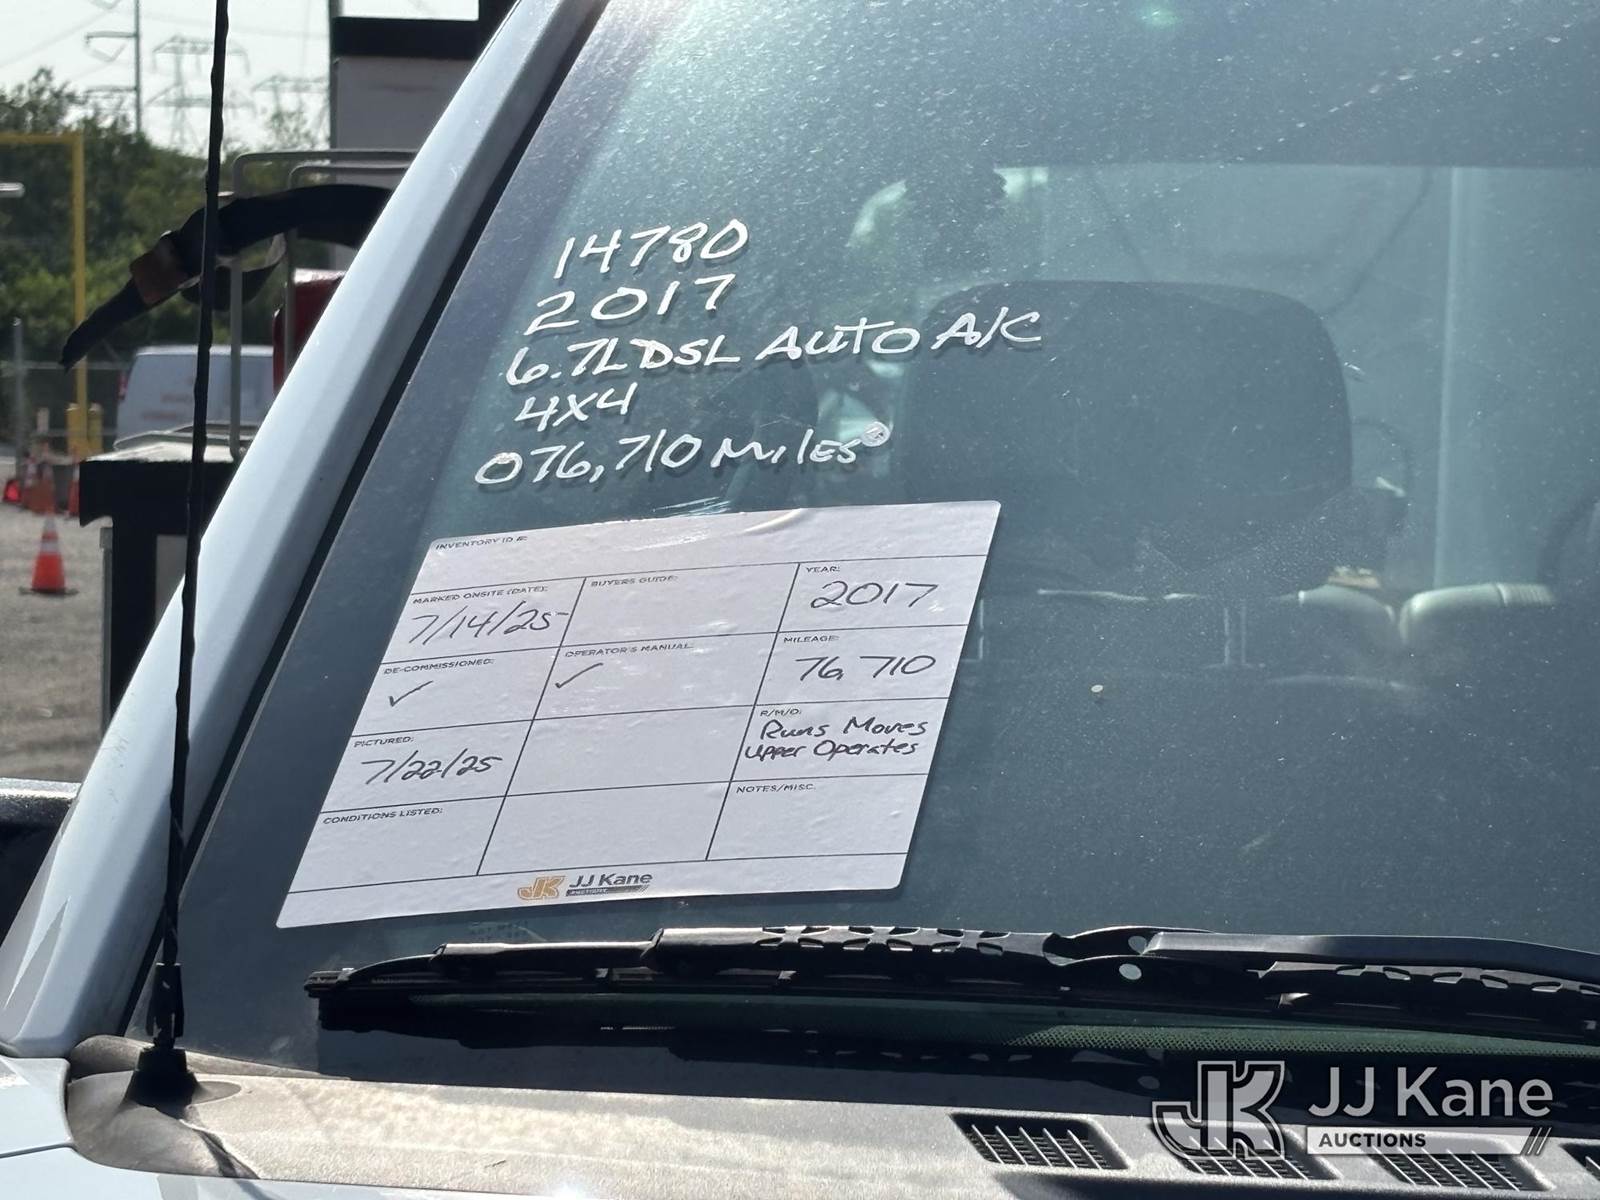 14780
2017
6.7L DSL AUTO A/C
4X4
076,710 MILES
INVENTORY ID #:
MARKED ONSITE (DATE):
7/14/25
BUYERS GUIDE:
YEAR:
2017
DE-COMMISSIONED:
✓
OPERATOR'S MANUAL:
✓
MILEAGE:
76,710
PICTURED:
7/22/25
R/M/O:
Runs Moves
Upper Operates
CONDITIONS LISTED:
NOTES/MISC.
JK JJ Kane
AUCTIONS
JK JJ Kane
AUCTIONS